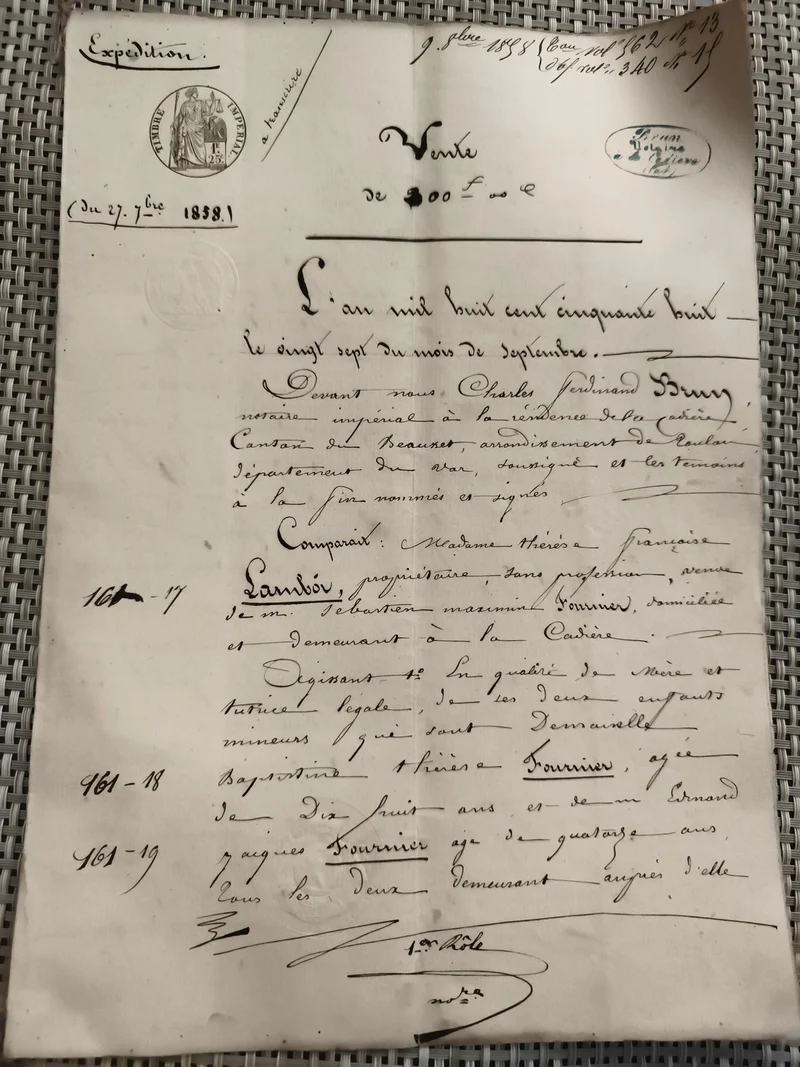 Expédition.
9. 8bre 1858
vol. 562 n° 13
vol. 340 n° 15
à transcrire
TIMBRE IMPERIAL
1F. 25c.
Vente
de 300 f 00 c
Brun
Notaire
à la Cadière
(Var)
(du 27. 7bre 1858.)
L'an mil huit cent cinquante huit
le vingt sept du mois de septembre.
Devant nous Charles Ferdinand Brun
notaire impérial à la résidence de la Cadière,
Canton du Beausset, arrondissement de Toulon
département du var, soussigné et les témoins
à la fin nommés et signés
Comparait : Madame thérèse françoise
161 - 17
Lambór, propriétaire, sans profession, veuve
de m. Sébastien maximin Fournier, domiciliée
et demeurant à la Cadière.
Agissant 1° En qualité de Mère et
tutrice légale, de ses deux enfants
mineurs qui sont Demoiselle
161 - 18
Baptistine thérèse Fournier, agée
de Dix huit ans et de m Edmond
161 - 19
jacques Fournier agé de quatorze ans,
tous les deux demeurant auprès d'elle
1er Rôle
nore